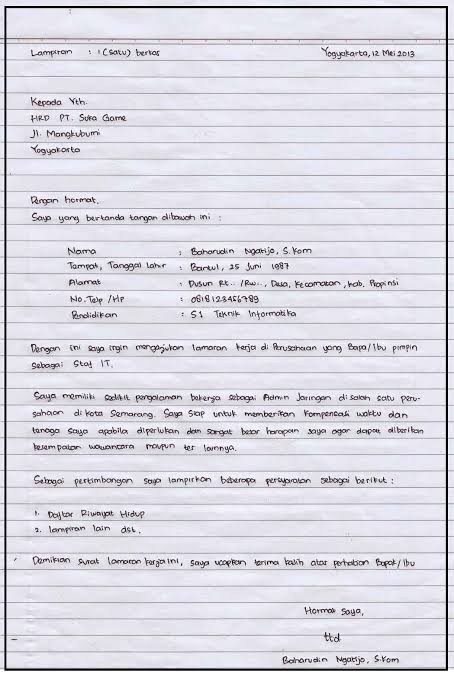 Lampiran : 1 (satu) berkas Yogyakarta, 12 Mei 2013
Kepada Yth.
HRD PT. Suka Game
Jl. Mangkubumi
Yogyakarta
Dengan hormat,
Saya yang bertanda tangan dibawah ini :
Nama : Baharudin Ngatijo, S.Kom
Tempat, Tanggal Lahir : Bantul, 25 Juni 1987
Alamat : Dusun Rt.. /Rw.., Desa, Kecamatan, Kab. Propinsi
No. Telp /HP : 08181234566789
Pendidikan : S1 Teknik Informatika
Dengan ini saya ingin mengajukan lamaran kerja di Perusahaan yang Bapa/Ibu pimpin
sebagai Staf IT.
Saya memiliki sedikit pengalaman bekerja sebagai Admin Jaringan di salah satu peru-
sahaan di kota Semarang. Saya siap untuk memberikan kompensasi waktu dan
tenaga saya apabila diperlukan dan sangat besar harapan saya agar dapat diberikan
kesempatan wawancara maupun tes lainnya.
Sebagai pertimbangan saya lampirkan beberapa persyaratan sebagai berikut :
1. Daftar Riwayat Hidup
2. lampiran lain dst.
Demikian surat lamaran kerja ini, saya ucapkan terima kasih atas perhatian Bapak/Ibu
Hormat Saya,
ttd
Baharudin Ngatijo, S.Kom